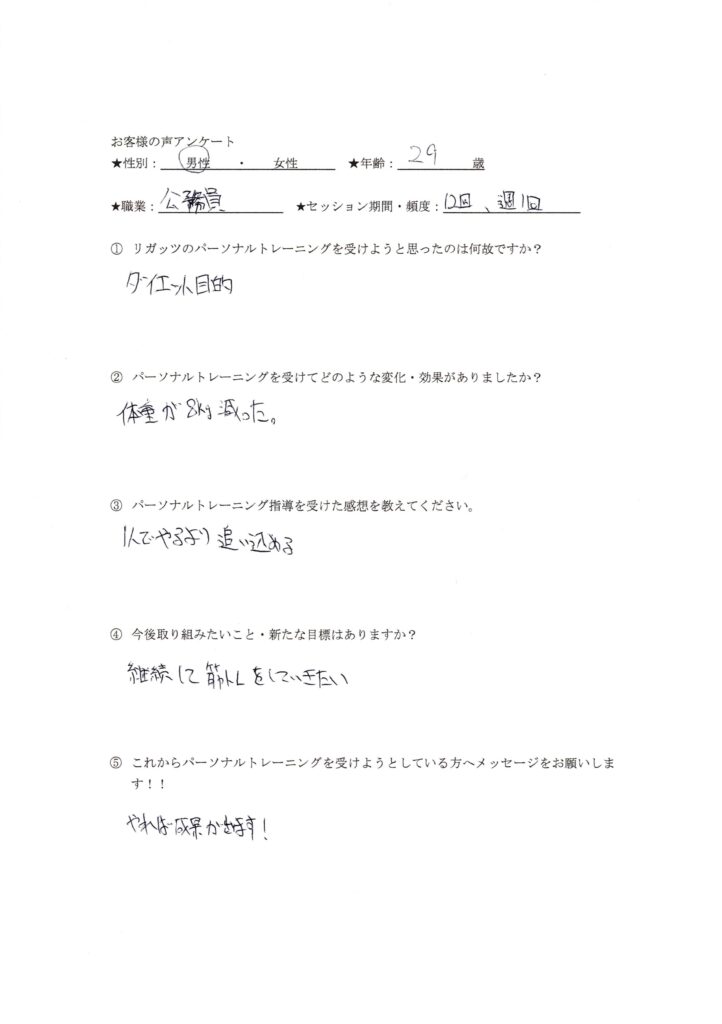 お客様の声アンケート
★性別：男性 ・ 女性 ★年齢：29歳
★職業：公務員 ★セッション期間・頻度：12回、週1回
① リガッツのパーソナルトレーニングを受けようと思ったのは何故ですか？
ダイエット目的
② パーソナルトレーニングを受けてどのような変化・効果がありましたか？
体重が8kg減った。
③ パーソナルトレーニング指導を受けた感想を教えてください。
1人でやるより追い込める
④ 今後取り組みたいこと・新たな目標はありますか？
継続して筋トレをしていきたい
⑤ これからパーソナルトレーニングを受けようとしている方へメッセージをお願いしま
す！！
やれば成果が出ます！